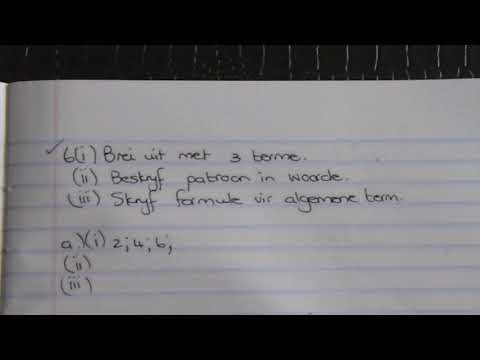 6(i) Brei uit met 3 terme.
(ii) Beskryf patroon in woorde.
(iii) Skryf formule vir algemene term.
a)(i) 2;4;6;
(ii)
(iii)